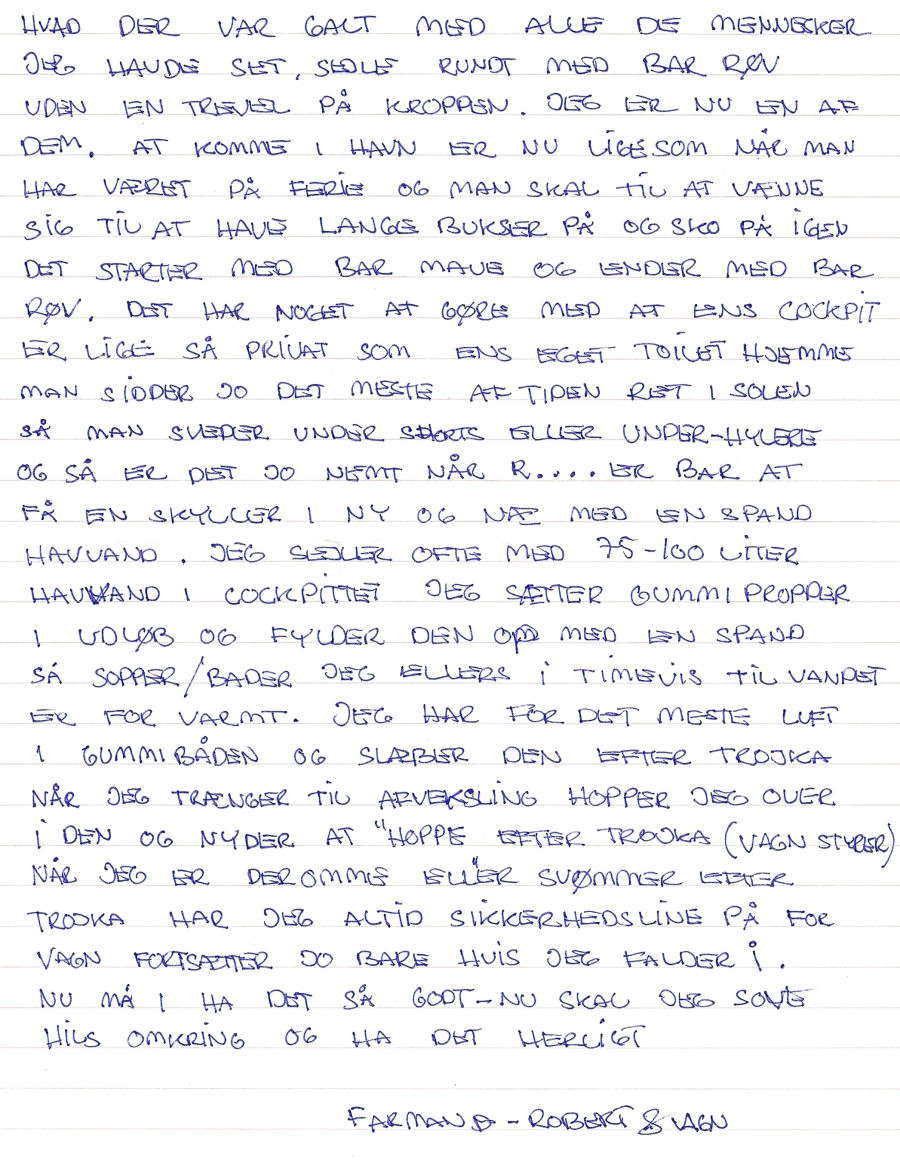 HVAD DER VAR GALT MED ALLE DE MENNESKER
JEG HAVDE SET, SEJLE RUNDT MED BAR RØV
UDEN EN TREVEL PÅ KROPPEN. JEG ER NU EN AF
DEM. AT KOMME I HAVN ER NU LIGESOM NÅR MAN
HAR VÆRET PÅ FERIE OG MAN SKAL TIL AT VÆNNE
SIG TIL AT HAVE LANGE BUKSER PÅ OG SKO PÅ IGEN
DET STARTER MED BAR MAVE OG ENDER MED BAR
RØV. DET HAR NOGET AT GØRE MED AT ENS COCKPIT
ER LIGE SÅ PRIVAT SOM ENS EGET TOILET HJEMME
MAN SIDDER JO DET MESTE AF TIDEN RET I SOLEN
SÅ MAN SVEDER UNDER SHORTS ELLER UNDER-HYLERE
OG SÅ ER DET JO NEMT NÅR R.... ER BAR AT
FÅ EN SKYLLER I NY OG NÆ MED EN SPAND
HAVVAND. JEG SEJLER OFTE MED 75-100 LITER
HAVVAND I COCKPITTET JEG SÆTTER GUMMIPROPPER
I UDLØB OG FYLDER DEN OP MED EN SPAND
SÅ SOPPER/BADER JEG ELLERS I TIMEVIS TIL VANDET
ER FOR VARMT. JEG HAR FOR DET MESTE LUFT
I GUMMIBÅDEN OG SLÆBER DEN EFTER TROJKA
NÅR JEG TRÆNGER TIL AFVEKSLING HOPPER JEG OVER
I DEN OG NYDER AT "HOPPE EFTER TROJKA (VAGN STYRER)
NÅR JEG ER DEROMME ELLER SVØMMER EFTER
TROJKA HAR JEG ALTID SIKKERHEDSLINE PÅ FOR
VAGN FORTSÆTTER JO BARE HVIS JEG FALDER I.
NU MÅ I HA DET SÅ GODT-NU SKAL JEG SOVE
HILS OMKRING OG HA DET HERLIGT
FARMAND - ROBERT & VAGN